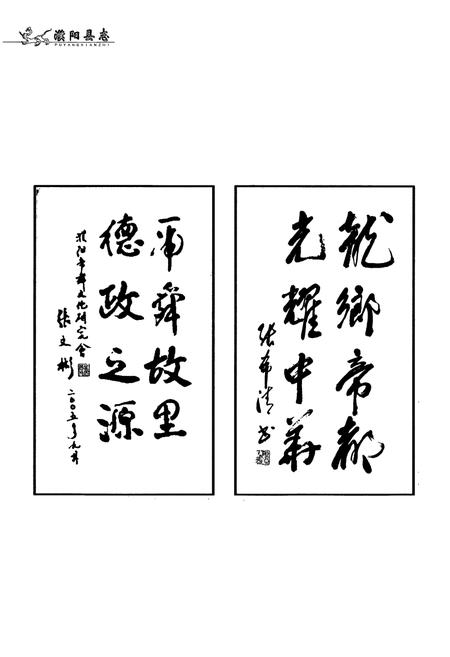 濮阳县志
PUYANGXIANZHI
龍鄉帝都
光耀中華
张希清书
帝舜故里
德政之源
濮阳帝舜文化研究会
张文彬
二〇〇五年九月